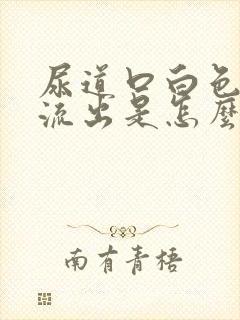 尿道口白色
流出是怎麼
南有青梧